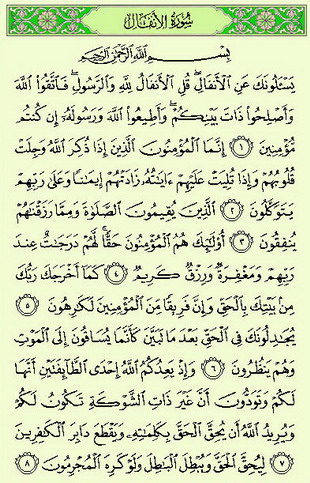 سُورَةُ الأَنفَالِ
بِسْمِ اللَّهِ الرَّحْمَٰنِ الرَّحِيمِ
يَسْـَٔلُونَكَ عَنِ الْأَنفَالِ ۖ قُلِ الْأَنفَالُ لِلَّهِ وَالرَّسُولِ ۖ فَاتَّقُوا اللَّهَ
وَأَصْلِحُوا ذَاتَ بَيْنِكُمْ ۖ وَأَطِيعُوا اللَّهَ وَرَسُولَهُۥ إِن كُنتُم
مُّؤْمِنِينَ ١ إِنَّمَا الْمُؤْمِنُونَ الَّذِينَ إِذَا ذُكِرَ اللَّهُ وَجِلَتْ
قُلُوبُهُمْ وَإِذَا تُلِيَتْ عَلَيْهِمْ ءَايَٰتُهُۥ زَادَتْهُمْ إِيمَٰنًا وَعَلَىٰ رَبِّهِمْ
يَتَوَكَّلُونَ ٢ الَّذِينَ يُقِيمُونَ الصَّلَوٰةَ وَمِمَّا رَزَقْنَٰهُمْ
يُنفِقُونَ ٣ أُولَٰٓئِكَ هُمُ الْمُؤْمِنُونَ حَقًّا ۚ لَّهُمْ دَرَجَٰتٌ عِندَ
رَبِّهِمْ وَمَغْفِرَةٌ وَرِزْقٌ كَرِيمٌ ٤ كَمَا أَخْرَجَكَ رَبُّكَ
مِنۢ بَيْتِكَ بِالْحَقِّ وَإِنَّ فَرِيقًا مِّنَ الْمُؤْمِنِينَ لَكَٰرِهُونَ ٥
يُجَٰدِلُونَكَ فِي الْحَقِّ بَعْدَ مَا تَبَيَّنَ كَأَنَّمَا يُسَاقُونَ إِلَى الْمَوْتِ
وَهُمْ يَنظُرُونَ ٦ وَإِذْ يَعِدُكُمُ اللَّهُ إِحْدَى الطَّائِفَتَيْنِ أَنَّهَا
لَكُمْ وَتَوَدُّونَ أَنَّ غَيْرَ ذَاتِ الشَّوْكَةِ تَكُونُ لَكُمْ
وَيُرِيدُ اللَّهُ أَن يُحِقَّ الْحَقَّ بِكَلِمَٰتِهِۦ وَيَقْطَعَ دَابِرَ الْكَٰفِرِينَ
٧ لِيُحِقَّ الْحَقَّ وَيُبْطِلَ الْبَٰطِلَ وَلَوْ كَرِهَ الْمُجْرِمُونَ ٨